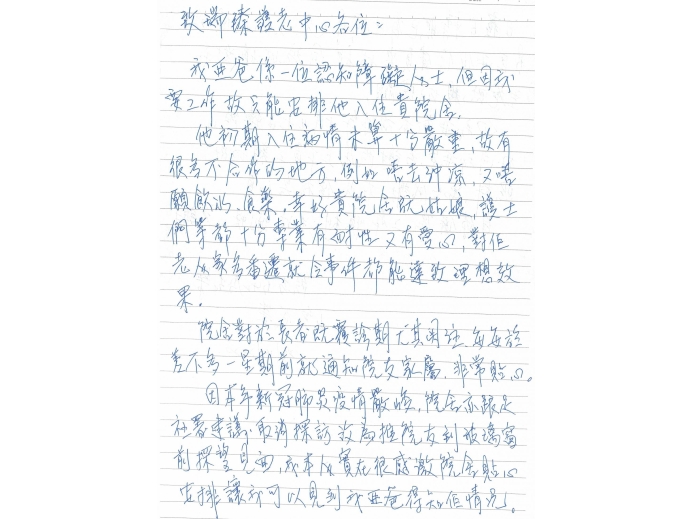 致瑯臻護老中心各位：
我亞爸係一位認知障礙人士，但因我
要工作故只能安排他入住貴院舍。
他初期入住病情未算十分嚴重，故有
很多不合作的地方，例如唔去沖涼，又唔
願飲水、食藥。幸好貴院舍既姑娘，護士
們等都十分專業有耐性又有愛心，對佢
老人家多番遷就令事件都能達致理想效
果。
院舍對於長者既覆診期尤其關注，每每於
差不多一星期前就通知院友家屬，非常貼心。
因本年新冠肺炎疫情嚴峻，院舍亦跟足
社署建議，取消探訪改為推院友到玻璃窗
前探望見面，我本人實在很感激院舍貼心
安排讓我可以見到我亞爸得知佢情況。